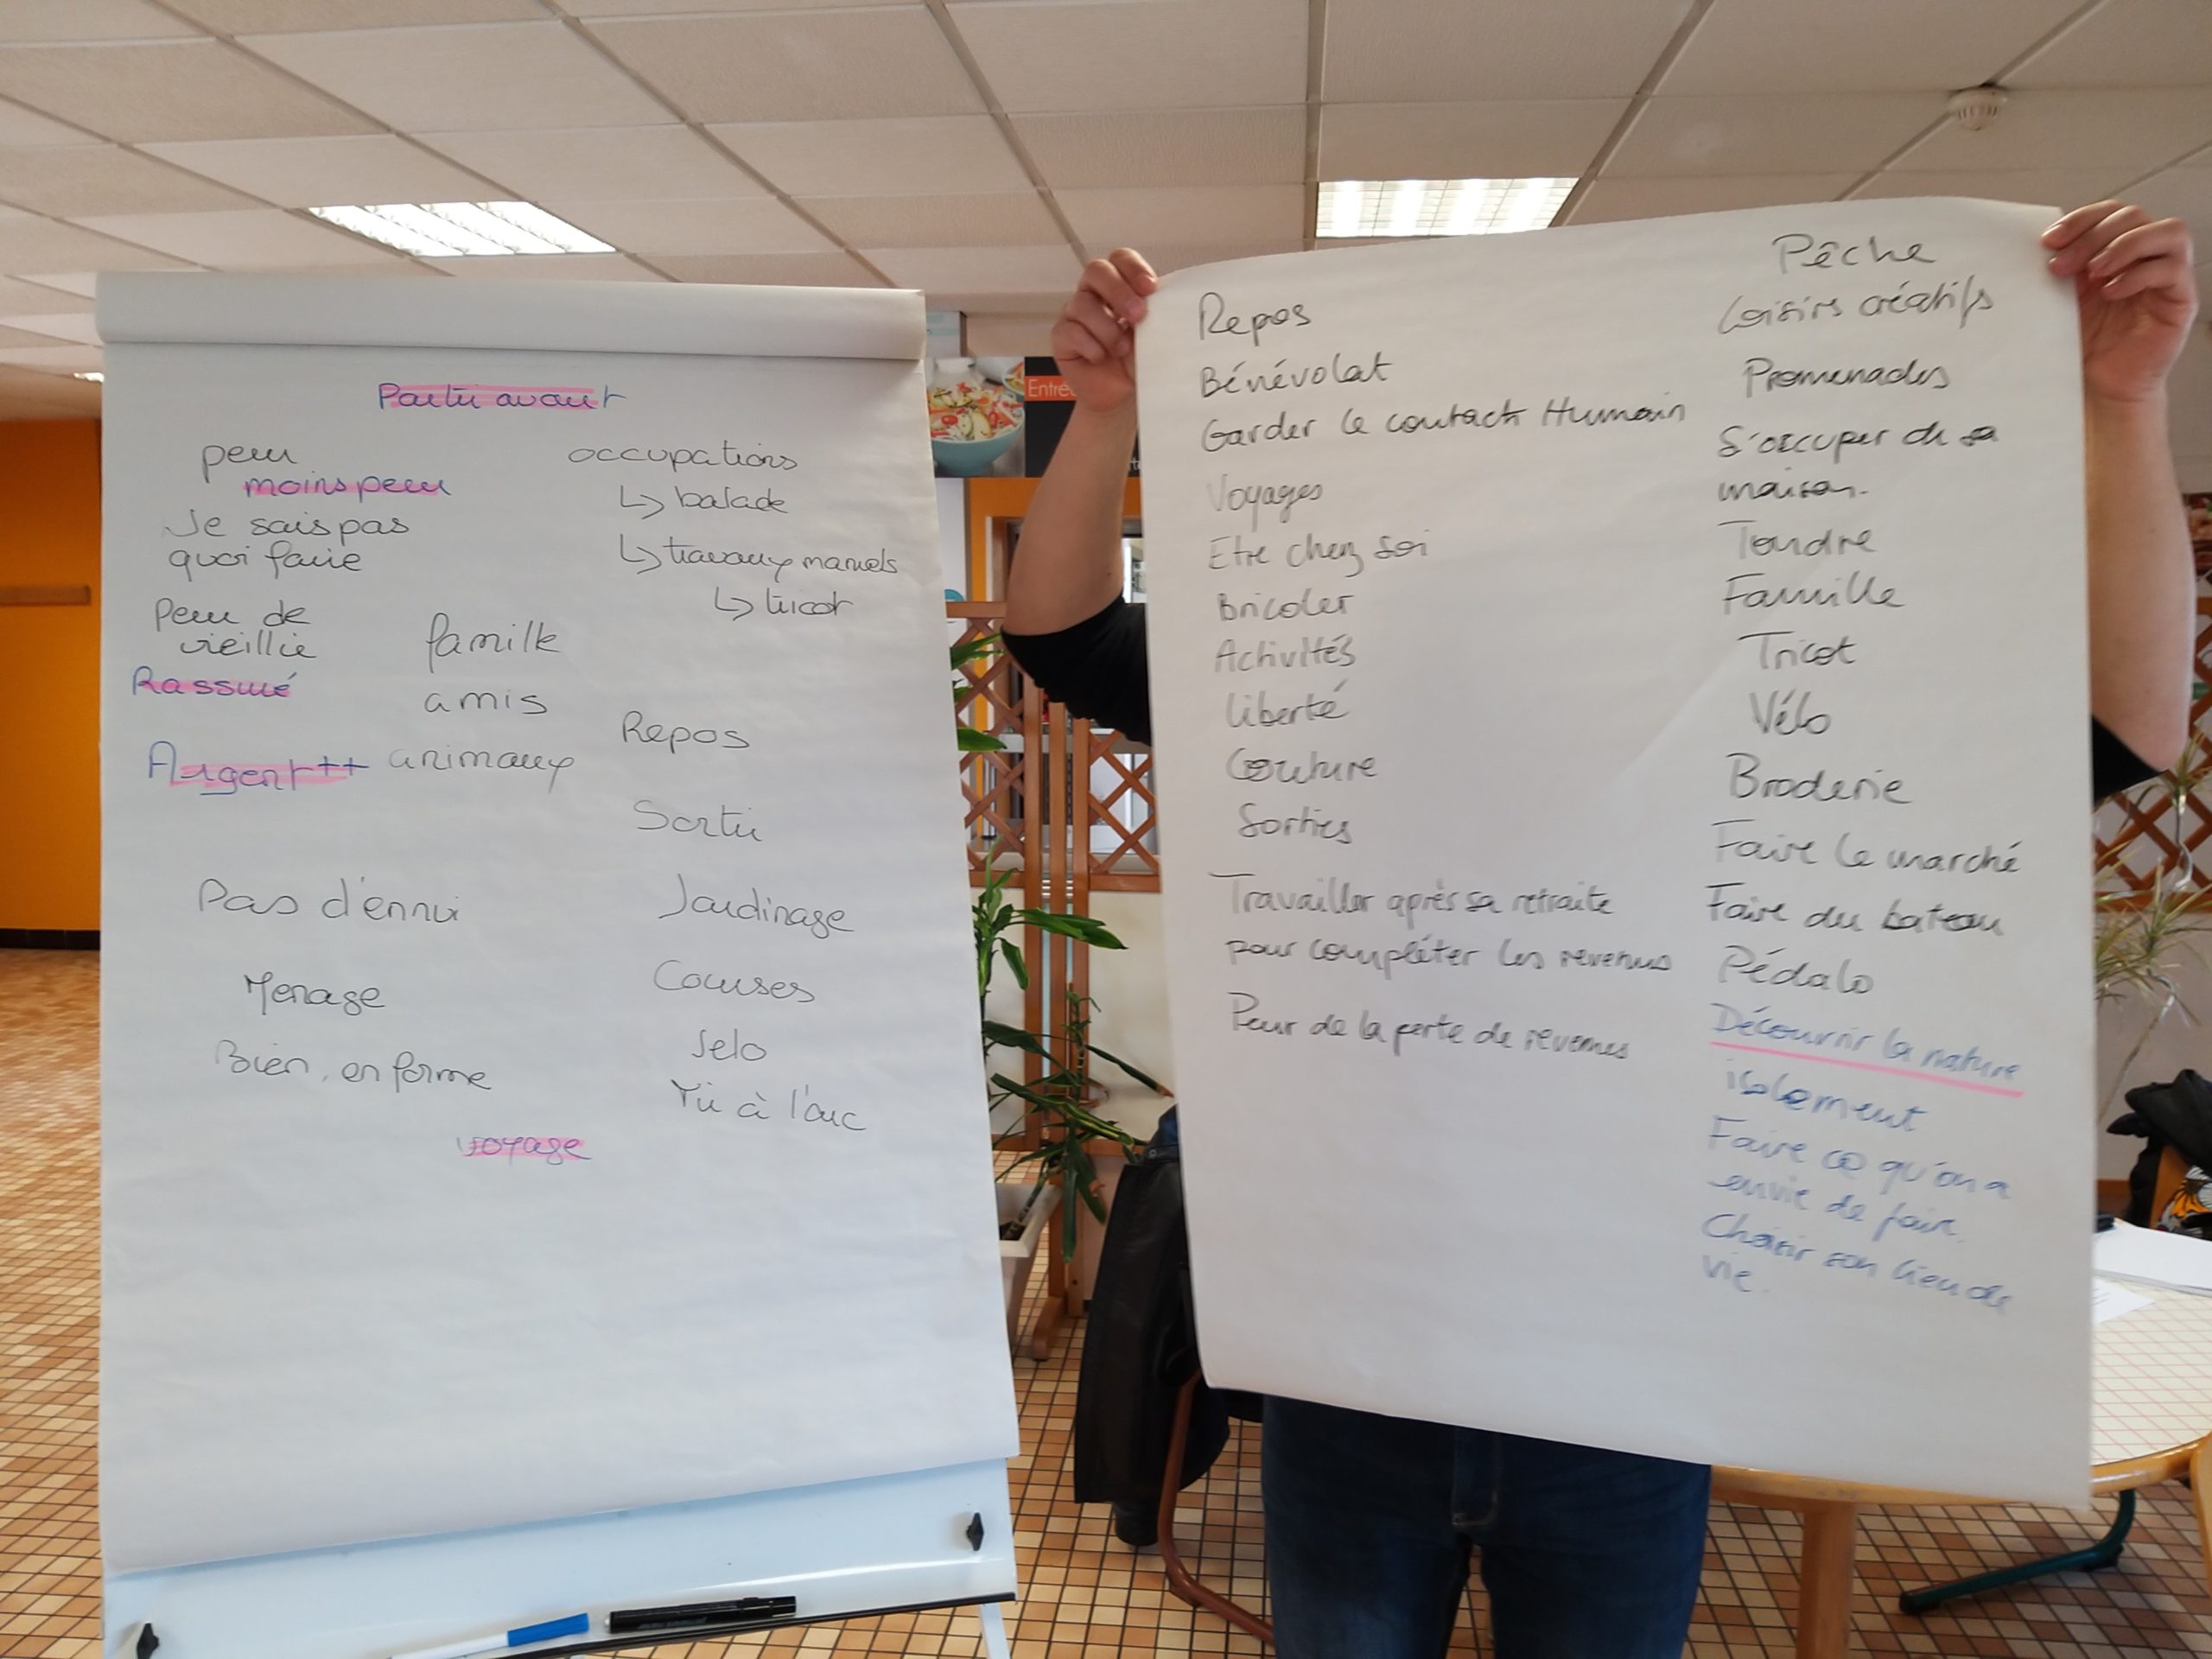 Partir avant
peur
moins peur
Je sais pas
quoi faire
Peur de
vieillir
Rassuré
Argent ++
famille
amis
animaux
occupations
↳ balade
↳ travaux manuels
↳ tricot
Repos
Sortir
Pas d'ennui
Menage
Bien, en forme
Jardinage
Courses
Velo
Tir à l'arc
voyage
Entré
Repos
Bénévolat
Garder le contact Humain
Voyages
Etre chez soi
Bricoler
Activités
liberté
Couture
Sorties
Travailler après sa retraite
pour compléter les revenus
Peur de la perte de revenus
Pêche
Loisirs créatifs
Promenades
S'occuper de sa
maison.
Tondre
Famille
Tricot
Vélo
Broderie
Faire le marché
Faire du bateau
Pédalo
Découvrir la nature
isolement
Faire ce qu'on a
envie de faire.
Choisir son lieu de
vie.